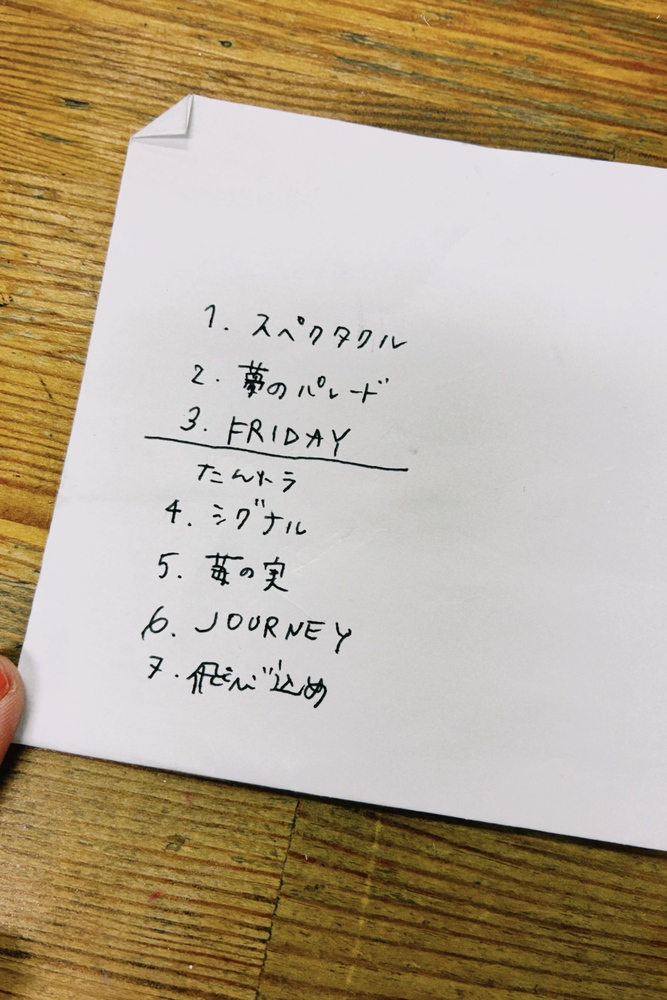 1. スペクタクル
2. 夢のパレード
3. FRIDAY
4. シグナル
5. 苺の実
6. JOURNEY
7. 飛び込め